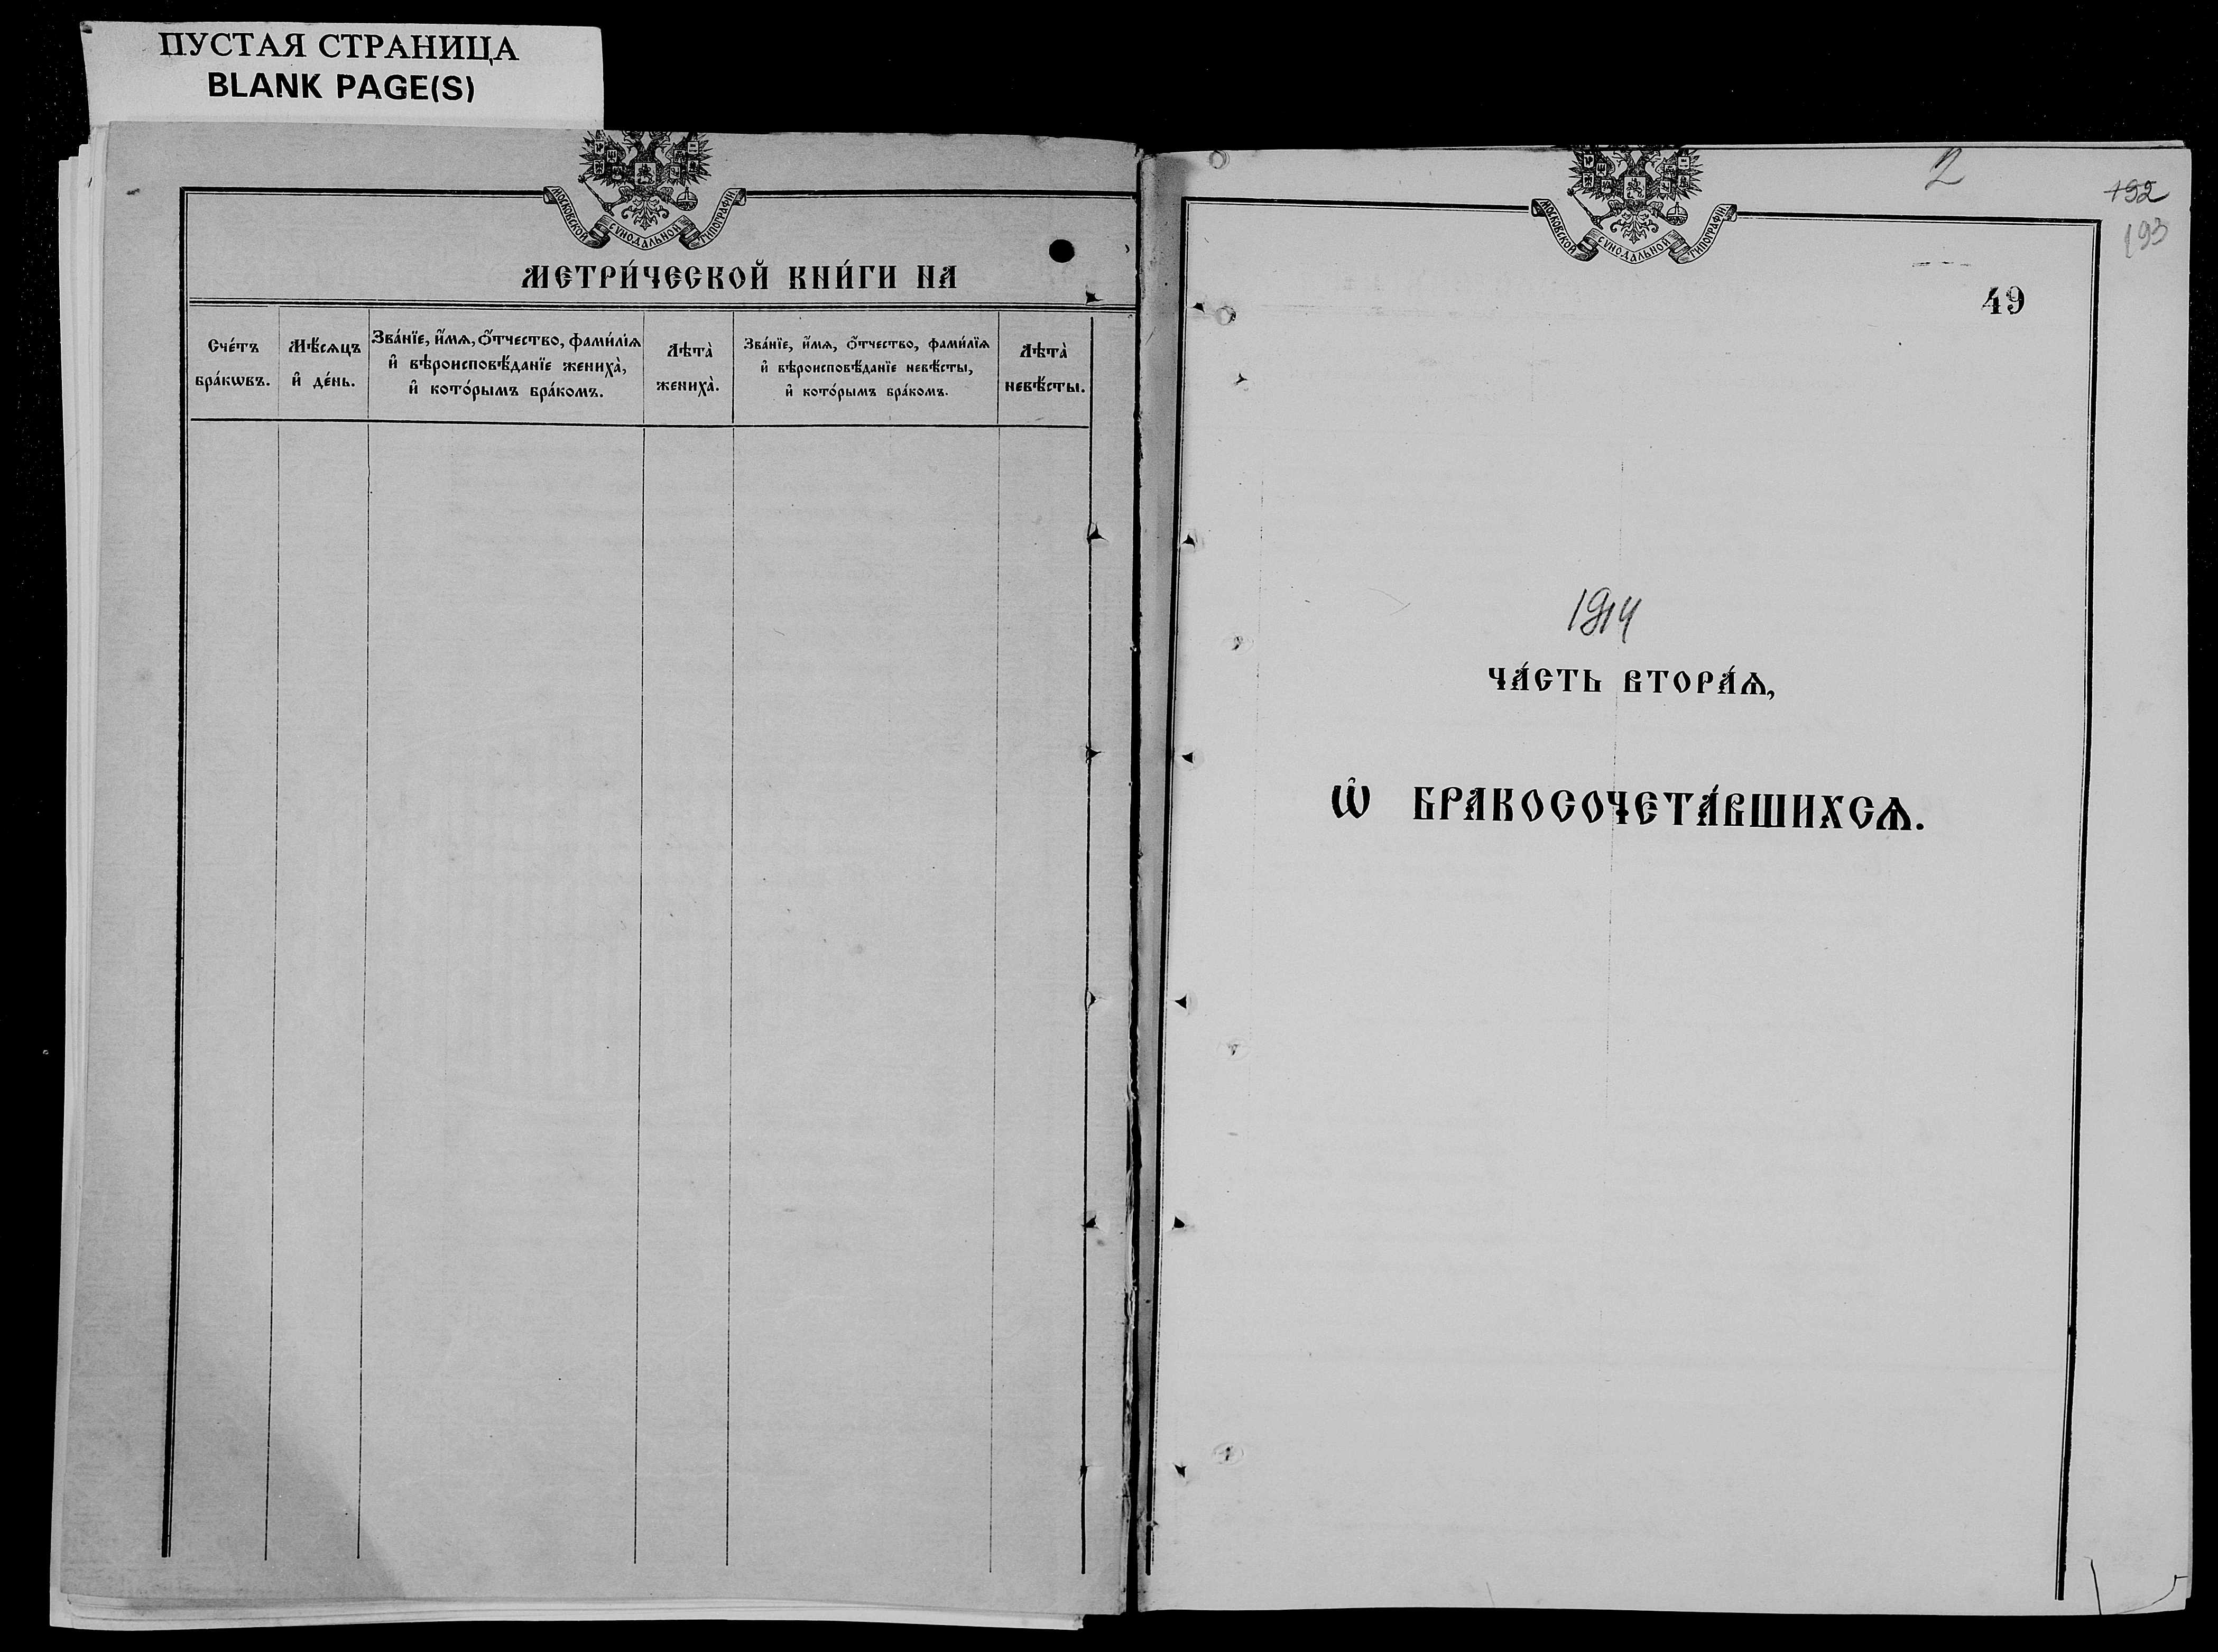 ПУСТАЯ СТРАНИЦА
BLANK PAGE(S)
МОСКОВСКОЙ СѴНОДАЛЬНОЙ ТИПОГРАФІИ.
МЕТРИ́ЧЕСКОЙ КНИ́ГИ НА
Сче́тъ
бра́кѡвъ.
Мѣ́сѧцъ
и҆ де́нь.
Зва́нїе, и҆́мѧ, ѻ҆́тчество, фами́лїѧ
и҆ вѣроисповѣ́данїе жениха̀,
и҆ кото́рымъ бра́комъ.
Лѣта̀
жениха̀.
Зва́нїе, и҆́мѧ, ѻ҆́тчество, фами́лїѧ
и҆ вѣроисповѣ́данїе невѣ́сты,
и҆ кото́рымъ бра́комъ.
Лѣта̀
невѣ́сты.
2
192
193
МОСКОВСКОЙ СѴНОДАЛЬНОЙ ТИПОГРАФІИ.
49
1914
ЧА́СТЬ ВТОРА́Ѧ,
Ѡ҆ БРАКОСОЧЕТА́ВШИХСѦ.